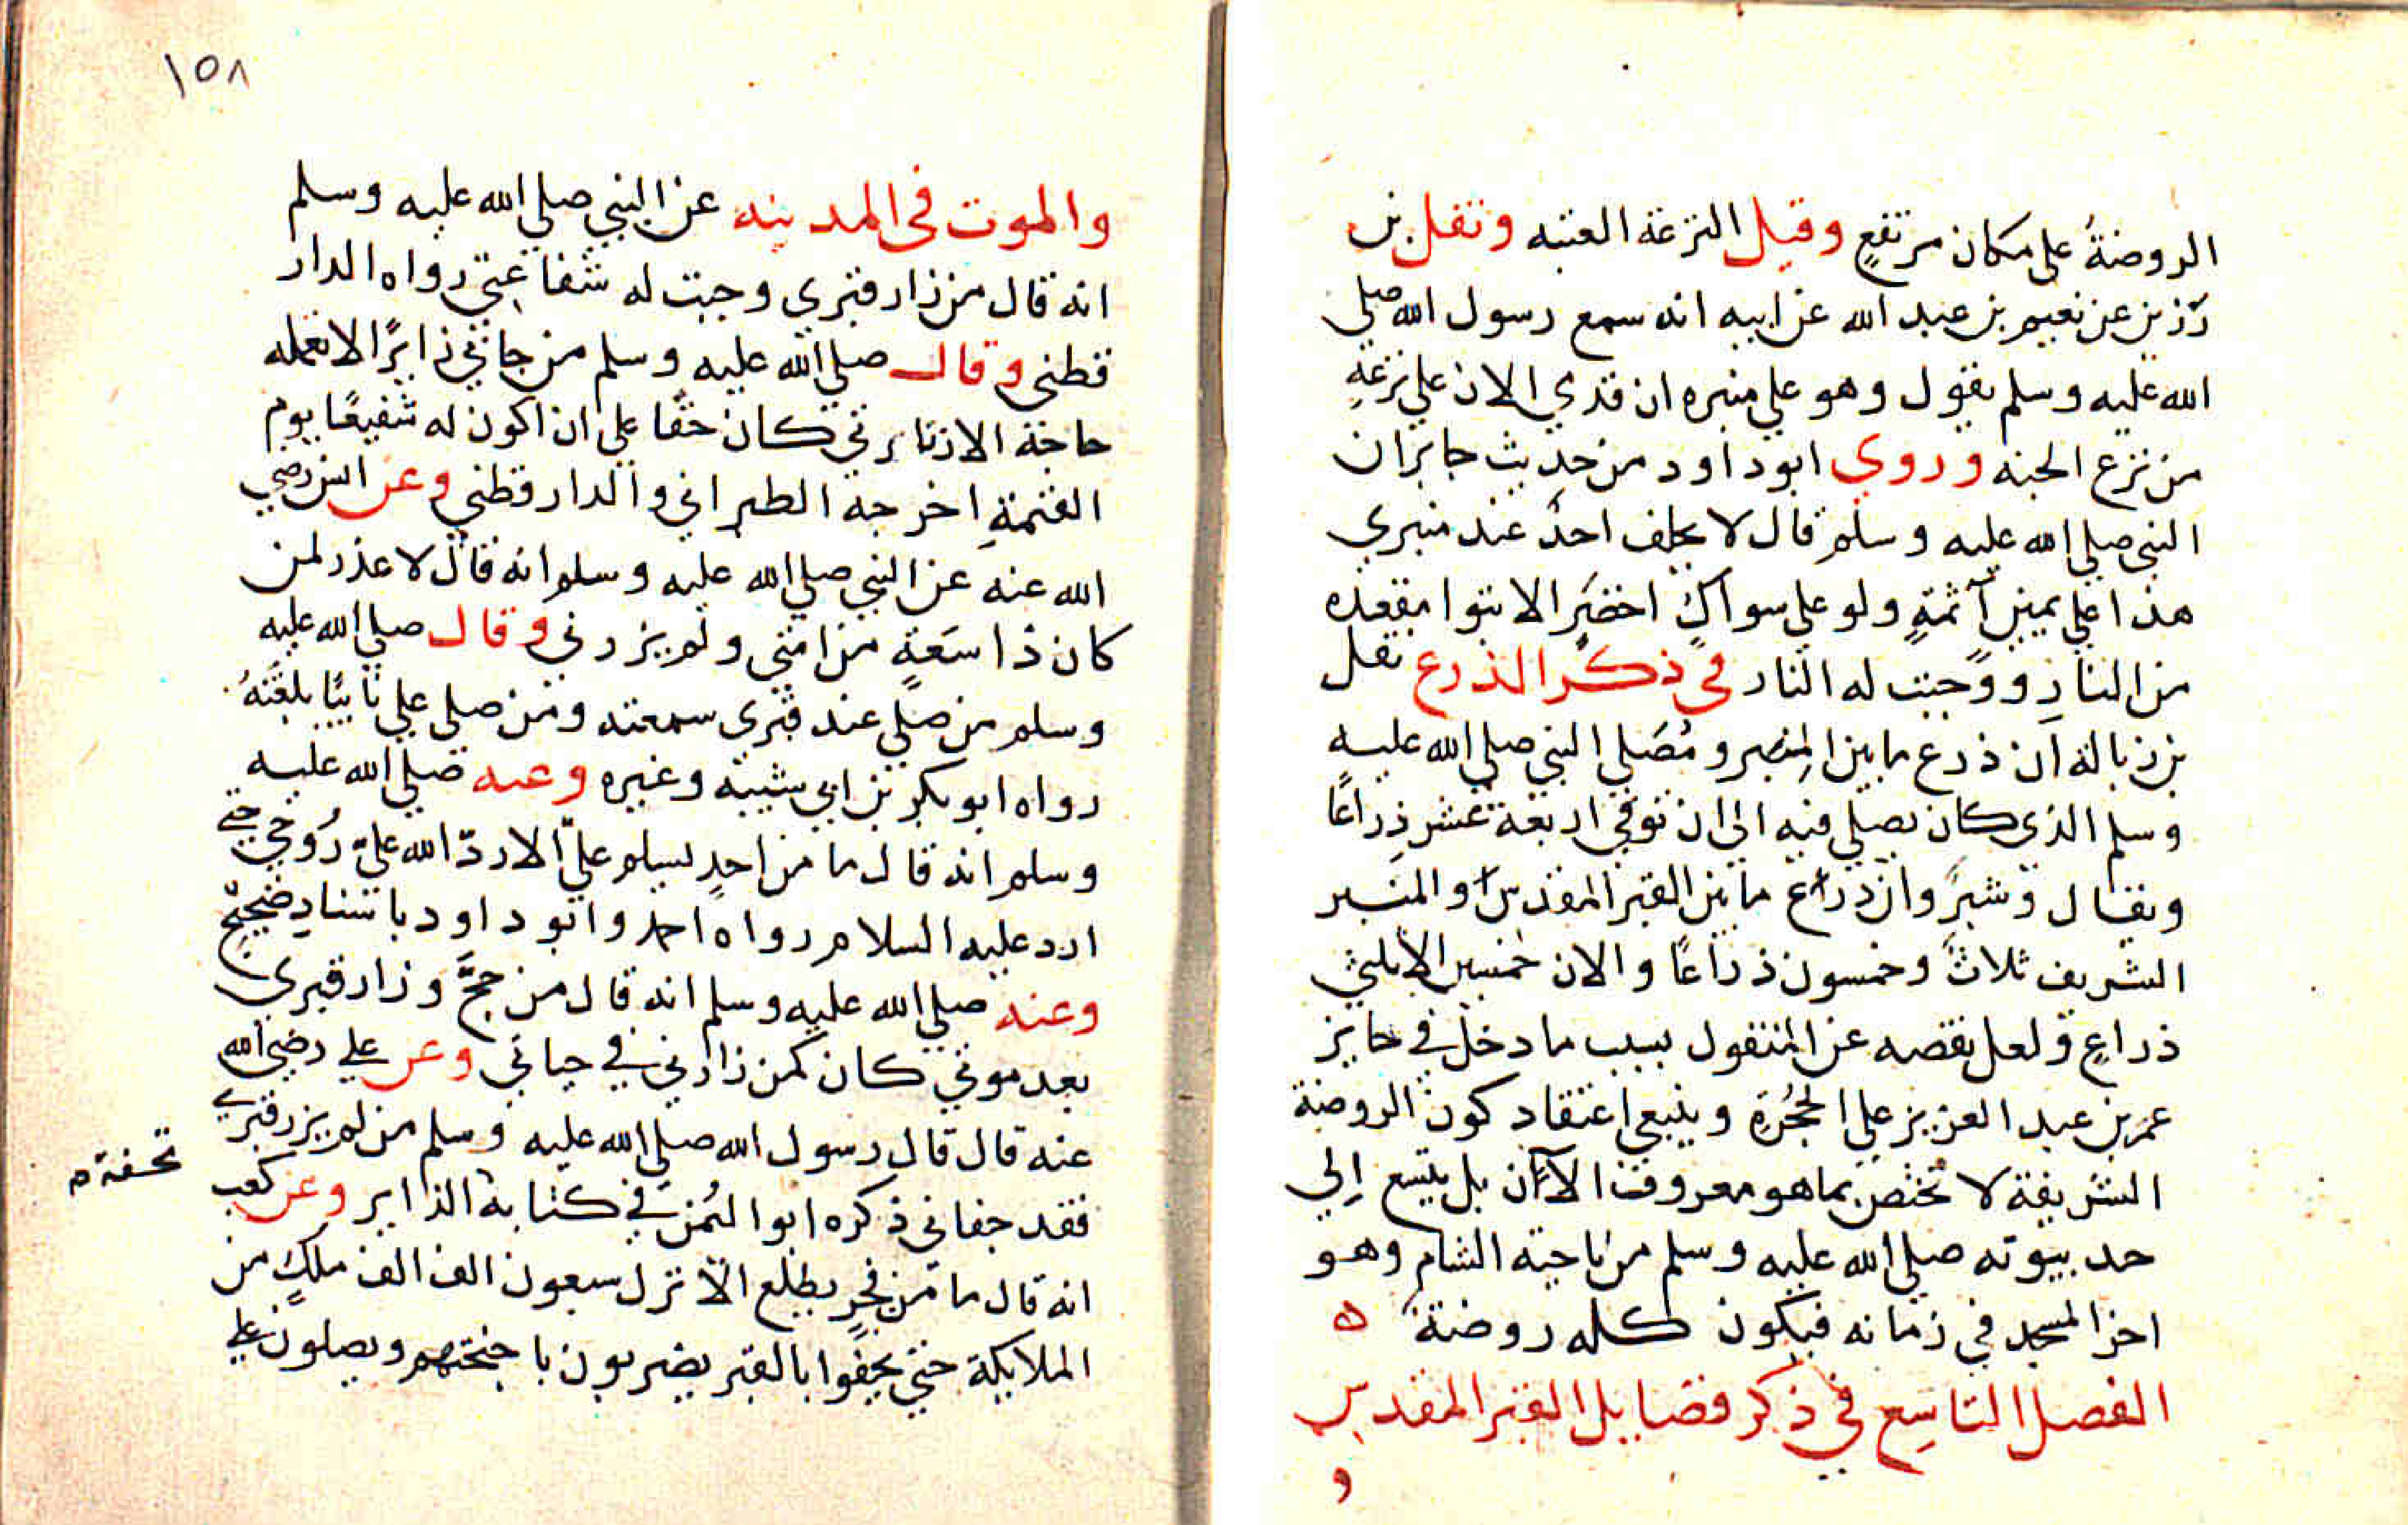 الروضةُ على مكان مرتفعٍ وقيل الترعة العتبه ونقل بن
رَزين عن نعيم بن عبد الله عن ابيه انه سمع رسول الله صلي
الله عليه وسلم يقول وهو علي منبره ان قدمي الان علي ترعةٍ
من ترع الجنه وروي ابو داود من حديث جابر ان
النبي صلي الله عليه وسلم قال لا يحلف احدٌ عند منبري
هذا علي يمينٍ آثمةٍ ولو علي سواكٍ اخضرٍ الا تبوا مقعده
من النارِ ووجبت له النار في ذكر الذرع نقل
بن زبالة ان ذرع ما بين المِنبر ومُصَلي النبي صلي الله عليه
وسلم الذي كان يصلي فيه الي ان توفي اربعة عشر ذِراعًا
ويقال وشبرٌ وان ذراع ما بين القبر المقدس والمنبر
الشريف ثلاثٌ وخمسون ذراعًا والان خمسين الا ثلثي
ذراعٍ ولعل نقصه عن المنقول بسبب ما دخل في حايز
عمر بن عبد العزيز علي الحُجُرَةِ وينبغي اعتقاد كون الروضة
الشريفة لا تختص بما هو معروف الآن بل يتسع اِلي
حد بيوته صلي الله عليه وسلم من ناحية الشام وهو
اخر المسجد في زمانه فيكون كله روضةً ه
الفصل التاسِع في ذكر فضايل القبر المقدس
و
١٥٨
والموت في المدينه عن النبي صلي الله عليه وسلم
انه قال من زار قبري وجبت له شفاعتي رواه الدار
قطني وقال صلي الله عليه وسلم من جاني زايرًا لا تعمله
حاجة الا زيارتي كان حقًا علي ان اكون له شفيعًا يوم
القيمةِ اخرجه الطبراني والدارقطني وعن انس رضي
الله عنه عن النبي صلي الله عليه وسلم انه قال لا عذر لمن
كان ذا سَعَةٍ من امتي ولم يزرني وقال صلي الله عليه
وسلم من صلي عند قبري سمعته ومن صلي علي نايًّا بلغتهُ
رواه ابو بكر بن ابي شيبة وغيره وعنه صلي الله عليه
وسلم انه قال ما من احدٍ يسلم عليّ الا ردّ الله عليّ رُوحي حتي
ارد عليه السلام رواه احمد وابو داود باسنادٍ صحيحٍ
وعنه صلي الله عليه وسلم انه قال من حجَّ وزار قبري
بعد موتي كان كمن زارني في حياتي وعن علي رضي الله
عنه قال قال رسول الله صلي الله عليه وسلم من لم يزر قبري
فقد جفاني ذكره ابو اليُمن في كتابه الزاير وعن كعب
تحفة م
انه قال ما من فجرٍ يطلع الا نزل سبعون الف الف ملكٍ من
الملايكة حتي يحفوا بالقبر يضربون باجنحتهم ويصلون علي